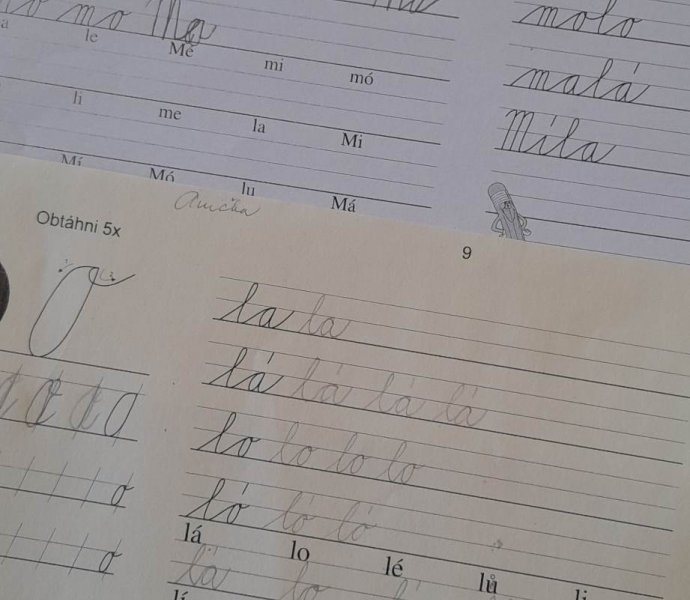 mo Ma
molo
le Mé mi mó
malá
li me la Mi
Míla
Mí Mó lu Má
Anička
Obtáhni 5x
9
la la
lá lá lá lá
lo lo lo lo
o
ló ló ló
lá lo lé lů li
o
lá lo
lí